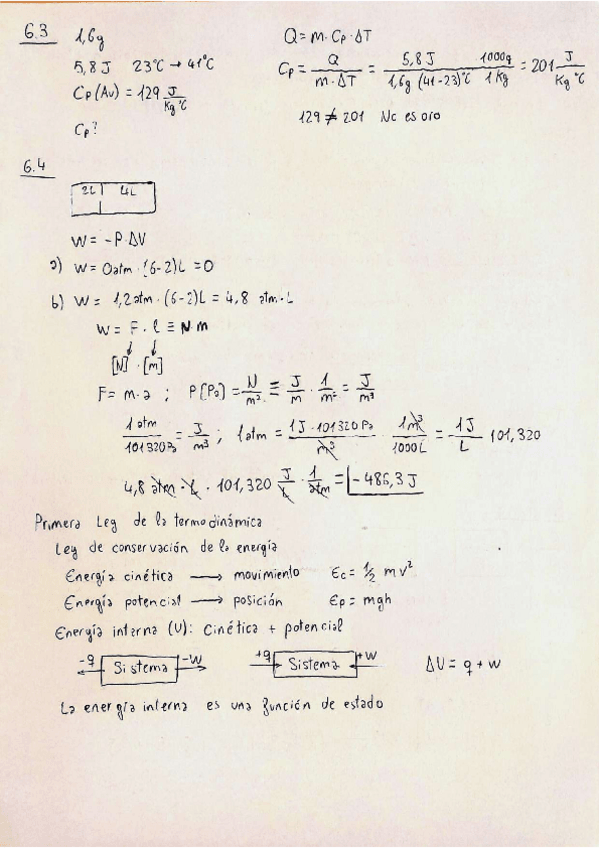 6.3 1,6g
5,8 J 23°C → 41°C
Cp (Au) = 129 J/Kg°C
Cp?
Q = m · Cp · ΔT
Cp = Q/(m · ΔT) = 5,8 J/(1,6g (41-23)°C) 1000g/1 Kg = 201 J/Kg°C
129 ≠ 201 No es oro
6.4
2L 4L
W = -P·ΔV
a) W = 0 atm · (6-2)L = 0
b) W = 1,2 atm · (6-2)L = 4,8 atm·L
W = F · l ≡ N·m
[N] · [m]
F = m·a ; P[Pa] = N/m² ≡ J/m · 1/m² = J/m³
1 atm/101320Pa = J/m³ ; 1 atm = 1J · 101320 Pa/m³ · 1m³/1000L = 1J/L 101,320
4,8 atm · L · 101,320 J/L · 1/atm = -486,3 J
Primera Ley de la termodinámica
Ley de conservación de la energía
Energía cinética → movimiento Ec = 1/2 mv²
Energía potencial → posición Ep = mgh
Energía interna (U): Cinética + potencial
-q Sistema -W +q Sistema +W ΔU = q + w
La energía interna es una función de estado